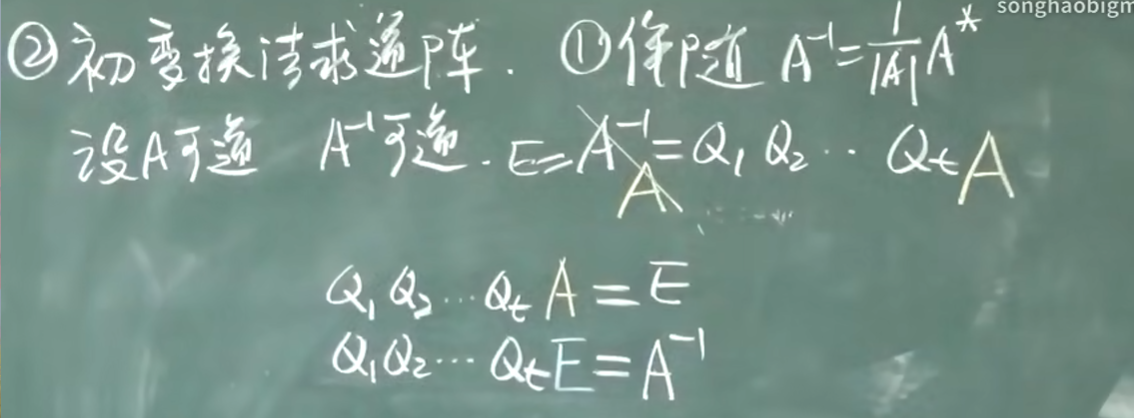 songhaobigm
②初变换法求逆阵. ①伴随 A⁻¹=1/|A| A*
设A可逆 A⁻¹可逆. E=A⁻¹A=Q₁ Q₂ ‥ Qₜ A
Q₁ Q₂ ⋯ Qₜ A = E
Q₁Q₂⋯ QₜE=A⁻¹